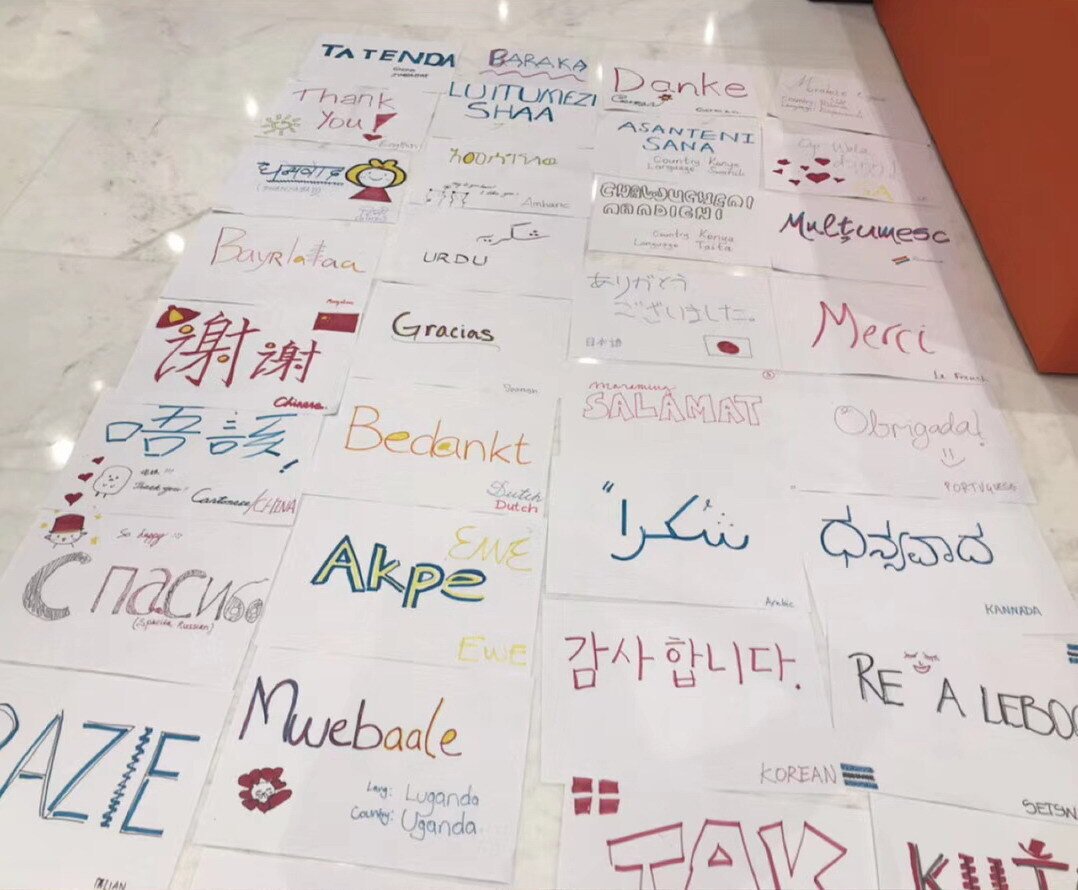 TATENDA
BARAKA
Danke
German
Thank
You!
English
LUITUMEZI
SHAA
ASANTENI
SANA
Country Kenya
Language Swahili
धन्यवाद
አመሰግናለሁ
Amharic
Country Kenya
Language Taita
Mulțumesc
Bayrlalaa
شكريہ
URDU
ありがとう
ございました。
日本語
Merci
le French
謝謝
Chinese
Gracias
Spanish
SALAMAT
Obrigada!
PORTUGUESE
唔該!
Thank you!
Cantonese/CHINA
Bedankt
Dutch
Dutch
"شكرا
Arabic
ಧನ್ಯವಾದ
KANNADA
So happy !!!
Спасибо
EWE
Akpe
EWE
감사합니다.
KOREAN
RE A LEBO
SETSW
Mwebaale
Lang: Luganda
Country: Uganda
RAZIE
ITALIAN
TAK